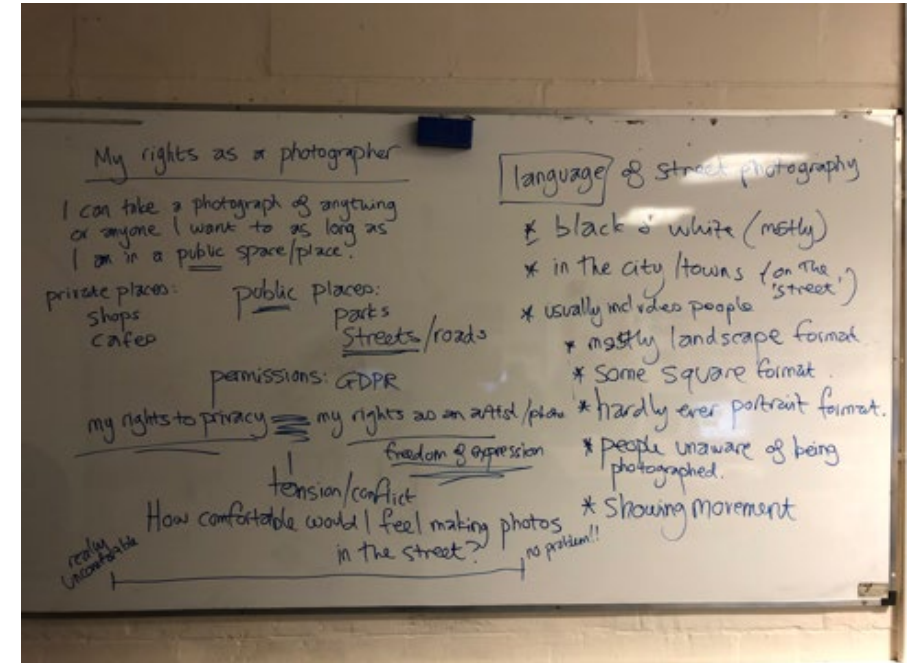 My rights as a photographer
I can take a photograph of anything
or anyone I want to as long as
I am in a public space/place.
private places:
shops
cafes
public places:
parks
Streets/roads
permissions: GDPR
my rights to privacy my rights as an artist/
freedom of expression
tension/conflict
How comfortable would I feel making photos
in the street?
really
uncomfortable
no problem!!
language of street photography
* black & white (mostly)
* in the city/towns (on the
'street')
* usually includes people
* mostly landscape format
* some square format.
* hardly ever portrait format.
* people unaware of being
photographed.
* showing movement